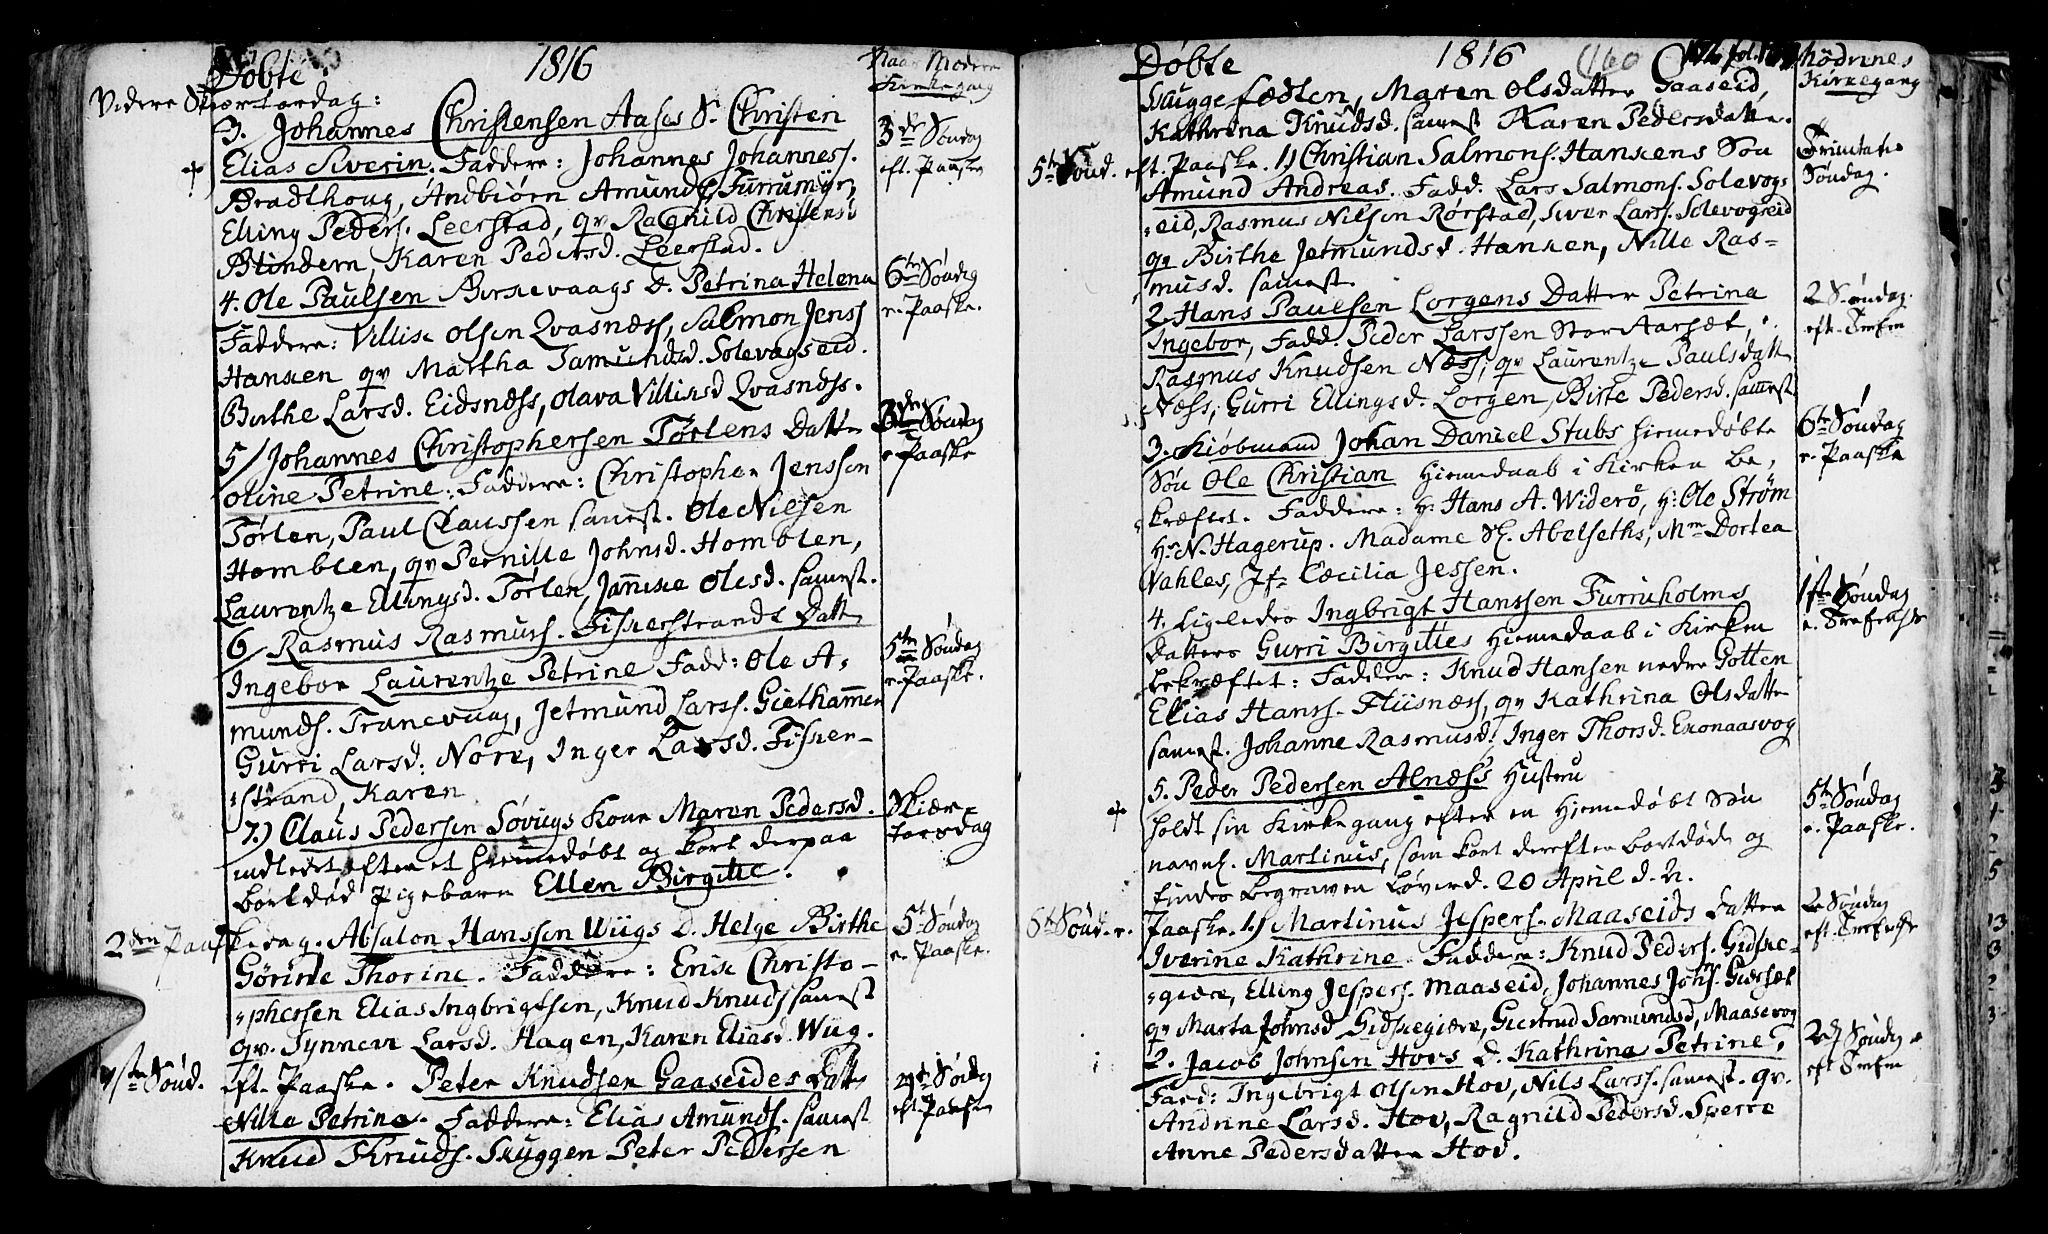 Døbte 1816
Naar Mødrene
Kirkegang
Videre Skiertorsdag:
3. Johannes Christensen Aases S. Christen
Elias Siverin. Faddere: Johannes Johanness.
Bradlhoug, Andbiørn Amunds. Furrumyr,
Elling Peders. Leerstad, qv Ragnild Christensd
Blindem, Karen Pedersd. Leerstad.
3de Søndag
eft. Paaske
4. Ole Paulsen Borsevaags D. Petrina Helena
Faddere: Villix Olsen Qvasness, Salmon Jenss
Hansen qv Martha Jamundsd. Solevagseid.
Birthe Larsd. Eidsness, Olava Villixsd Qvasness.
6te Søndag
e. Paaske.
5/ Johannes Christophersen Tørlens Datter
Oline Petrine. Faddere: Christopher Jenssen
Tørlen, Paul Claussen samest. Ole Nielsen
Homblen, qv Pernille Johnsd. Homblen,
Laurentze Ellingsd. Tørlen, Jannixe Olesd. samest.
3de Søndag
e. Paaske
6 Rasmus Rasmuss. Fiskerstrands Datter
Ingebor Laurentze Petrine Fadd: Ole A.
munds. Tranevaag, Jetmund Larss. Giethammer
Gurri Larsd. Nore, Inger Larsd. Fisker-
strand, Karen
5te Søndag
e. Paaske.
7.) Claus Pedersen Søvigs Kone Maren Pedersd.
indledt efter et hiemmedøbt og kort derpaa
bortdød Pigebarn Ellen Birgitte.
Skiær-
torsdag
2den Paaskedag. Absalon Hanssen Wiigs D. Helge Birthe
Gørine Thorine. Faddere: Erik Christo-
phersen Elias Ingbrigtsen, Knud Knuds samest
qv. Synnev Larsd. Hagen, Karen Eliasd. Wiig.
5te Søndag
e. Paaske.
1ste Sønd. eft. Paaske. Peter Knudsen Gaaseides Datter
Nille Petrine. Faddere: Elias Amunds. samest
Knud Knuds. Skuggen Peter Pedersen
eft. Paaske
Døbte 1816 160
Mødrenes
Kirkegang
Skuggefedten, Maren Olsdatter Gaaseid,
Kathrina Knudsd. samest Karen Pedersdatter.
5te Sønd. eft. Paaske. 1) Christian Salmons. Hansens Søn
Amund Andreas. Fadd. Lars Salmons. Solevogs-
eid, Rasmus Nilsen Rørstad, Siver Larss. Solevogseid
qv Birthe Jetmundsd. Hansen, Nille Ras-
musd. samest.
Trinitatis
Søndag.
2 Hans Paulsen Lorgens Datter Petrina
Ingebor, Fadd. Peder Larssen Stor Aarsæt,
Rasmus Knudsen Næss, qv Laurentze Paulsdatter
Næss, Gurri Ellingsd. Lorgen, Birte Pedersd. samest
2 Søndag.
eft. Trefn
3. Kiøbmand Johan Daniel Stubs hiemedøbte
Søn Ole Christian hiemedaab i Kirken be-
kræftet. Faddere: Hr Hans A. Widerø, H: Ole Strøm
Hr N. Hagerup. Madame Sl. Abelseths, Mm Dortea
Vahles, Jfr Cæcilia Jessen.
6te Søndag
e. Paaske
4. Ligeledes Ingbrigt Hanssen Furruholms
Datters Gurri Birgittes hiemedaab i Kirken
bekræftet: Faddere: Knud Hansen nedre Gotten
Elias Hanss. Fliisness, qv Kathrina Olsdatter
samest. Johanne Rasmusd. Inger Thorsd. Exonaasvog
1ste Søndag
5. Peder Pedersen Alness Hustru
holdt sin Kirkegang efter en hiemedøbt Søn
navnl. Martinus, som kort derefter bortdøde og
findes begraven Løverd. 20 April d. A.
5te Søndag
e. Paaske.
6te Sønd. e. Paaske. 1) Martinus Jespers. Maaseids Datter
Iverine Kathrine. Faddere: Knud Peders. Gidske-
giære, Elling Jespers. Maaseid, Johannes Johs. Gidskæt
qv Marta Johnsd Gidskegiære, Giertrud Samundsd, Maasevog
2 Søndag
2. Jacob Johnsen Hovs D. Kathrina Petrine,
Fadd: Ingebrigt Olsen Hov, Nils Larss. samest. qv.
Andrine Larsd. Hov, Ragnild Pedersd. Sperre
Anne Pedersdatter Hov.